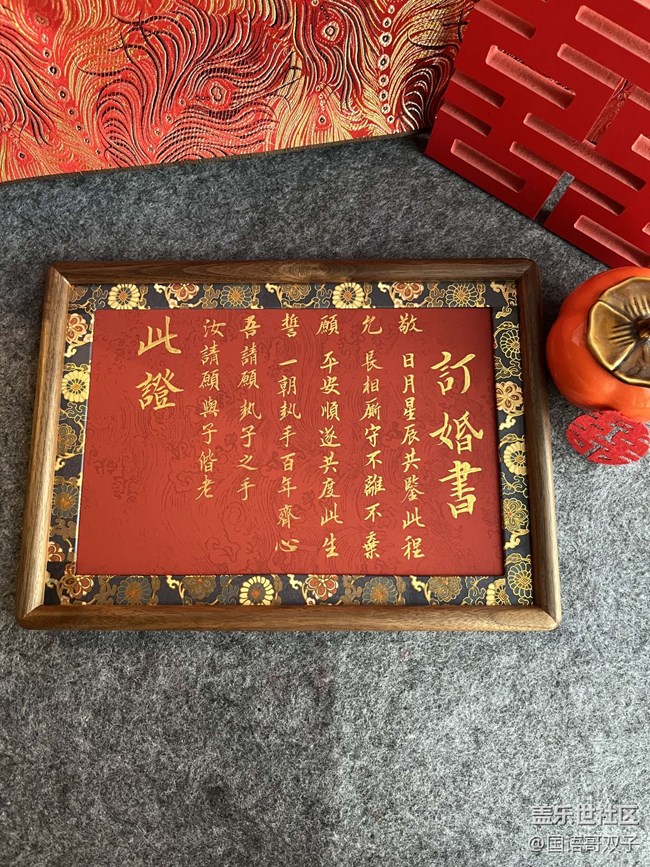 訂婚書
敬 日月星辰共鑒此程
允 長相廝守不離不棄
願 平安順遂共度此生
誓 一朝執手百年齊心
吾請願執子之手
汝請願與子偕老
此證
盖乐世社区
@国语哥双子